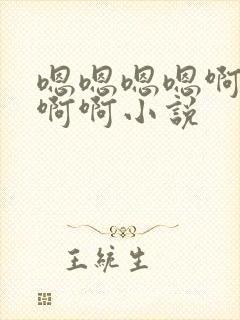 嗯嗯嗯嗯啊
啊啊小说
王统生